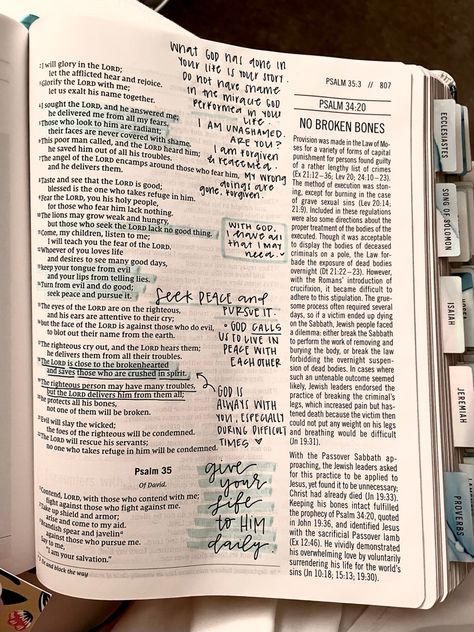 PSALM 35:3 // 807
²I will glory in the LORD;
let the afflicted hear and rejoice.
³Glorify the LORD with me;
let us exalt his name together.
⁴I sought the LORD, and he answered me;
he delivered me from all my fears.
⁵Those who look to him are radiant;
their faces are never covered with shame.
⁶This poor man called, and the LORD heard him;
he saved him out of all his troubles.
⁷The angel of the LORD encamps around those who fear him,
and he delivers them.
⁸Taste and see that the LORD is good;
blessed is the one who takes refuge in him.
⁹Fear the LORD, you his holy people,
for those who fear him lack nothing.
¹⁰The lions may grow weak and hungry,
but those who seek the LORD lack no good thing.
¹¹Come, my children, listen to me;
I will teach you the fear of the LORD.
¹²Whoever of you loves life
and desires to see many good days,
¹³keep your tongue from evil
and your lips from telling lies.
¹⁴Turn from evil and do good;
seek peace and pursue it.
¹⁵The eyes of the LORD are on the righteous,
and his ears are attentive to their cry;
¹⁶but the face of the LORD is against those who do evil,
to blot out their name from the earth.
¹⁷The righteous cry out, and the LORD hears them;
he delivers them from all their troubles.
¹⁸The LORD is close to the brokenhearted
and saves those who are crushed in spirit.
¹⁹The righteous person may have many troubles,
but the LORD delivers him from them all;
²⁰he protects all his bones,
not one of them will be broken.
²¹Evil will slay the wicked;
the foes of the righteous will be condemned.
²²The LORD will rescue his servants;
no one who takes refuge in him will be condemned.
Psalm 35
Of David.
Contend, LORD, with those who contend with me;
fight against those who fight against me.
²Take up shield and armor;
arise and come to my aid.
³Brandish spear and javelin
against those who pursue me.
Say to me,
"I am your salvation."
or and block the way
WHAT GOD HAS DONE IN
YOUR LIFE IS YOUR STORY.
DO NOT HAVE SHAME
IN THE MIRACLE GOD
PERFORMED IN YOUR
LIFE.
I AM UNASHAMED.
ARE YOU?
I am forgiven
& redeemed.
MY WRONG
DOINGS ARE
GONE, FORGIVEN.
WITH GOD,
I HAVE ALL
THAT I MAY
NEED.
SEEK PEACE and
PURSUE IT.
• GOD CALLS
US TO LIVE IN
PEACE WITH
EACH OTHER
GOD IS
ALWAYS WITH
YOU, ESPECIALLY
DURING DIFFICULT
TIMES ♥
give
your
life
to HIM
daily.
PSALM 34:20
NO BROKEN BONES
Provision was made in the Law of Mo-
ses for a variety of forms of capital
punishment for persons found guilty
of a rather lengthy list of crimes
(Ex 21:12–36; Lev 20; 24:10–23).
The method of execution was ston-
ing, except for burning in the case
of grave sexual sins (Lev 20:14;
21:9). Included in these regulations
were also some directions about the
proper treatment of the bodies of the
executed. Though it was acceptable
to display the bodies of deceased
criminals on a pole, the Law for-
bade the exposure of dead bodies
overnight (Dt 21:22–23). However,
with the Romans' introduction of
crucifixion, it became difficult to
adhere to this stipulation. The grue-
some process often required several
days, so if a victim ended up dying
on the Sabbath, Jewish people faced a
dilemma: either break the Sabbath
to perform the work of removing and
burying the body, or break the law
forbidding the overnight suspen-
sion of dead bodies. In cases where
such an untenable outcome seemed
likely, Jewish leaders endorsed the
practice of breaking the criminal's
legs, which increased pain but has-
tened death because the victim then
could not put any weight on his legs
and breathing would be difficult
(Jn 19:31).
With the Passover Sabbath ap-
proaching, the Jewish leaders asked
for this practice to be applied to
Jesus, yet found it to be unnecessary;
Christ had already died (Jn 19:33).
Keeping his bones intact fulfilled
the prophecy of Psalm 34:20, quoted
in John 19:36, and identified Jesus
with the sacrificial Passover lamb
(Ex 12:46). He vividly demonstrated
his overwhelming love by voluntarily
surrendering his life for the world's
sins (Jn 10:18; 15:13; 19:30).
ECCLESIASTES
SONG OF SOLOMON
ISAIAH
JEREMIAH
PROVERBS